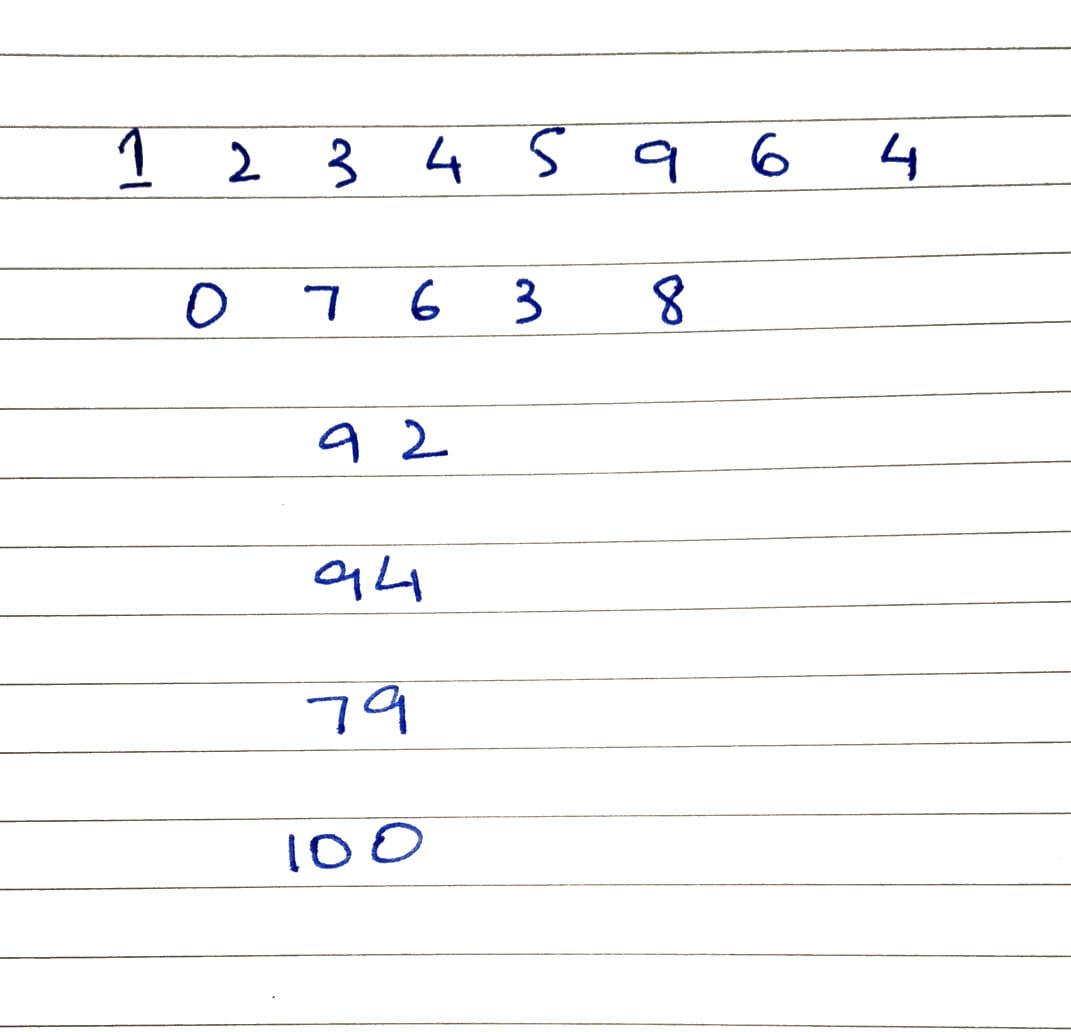 1 2 3 4 5 9 6 4
0 7 6 3 8
9 2
94
79
100